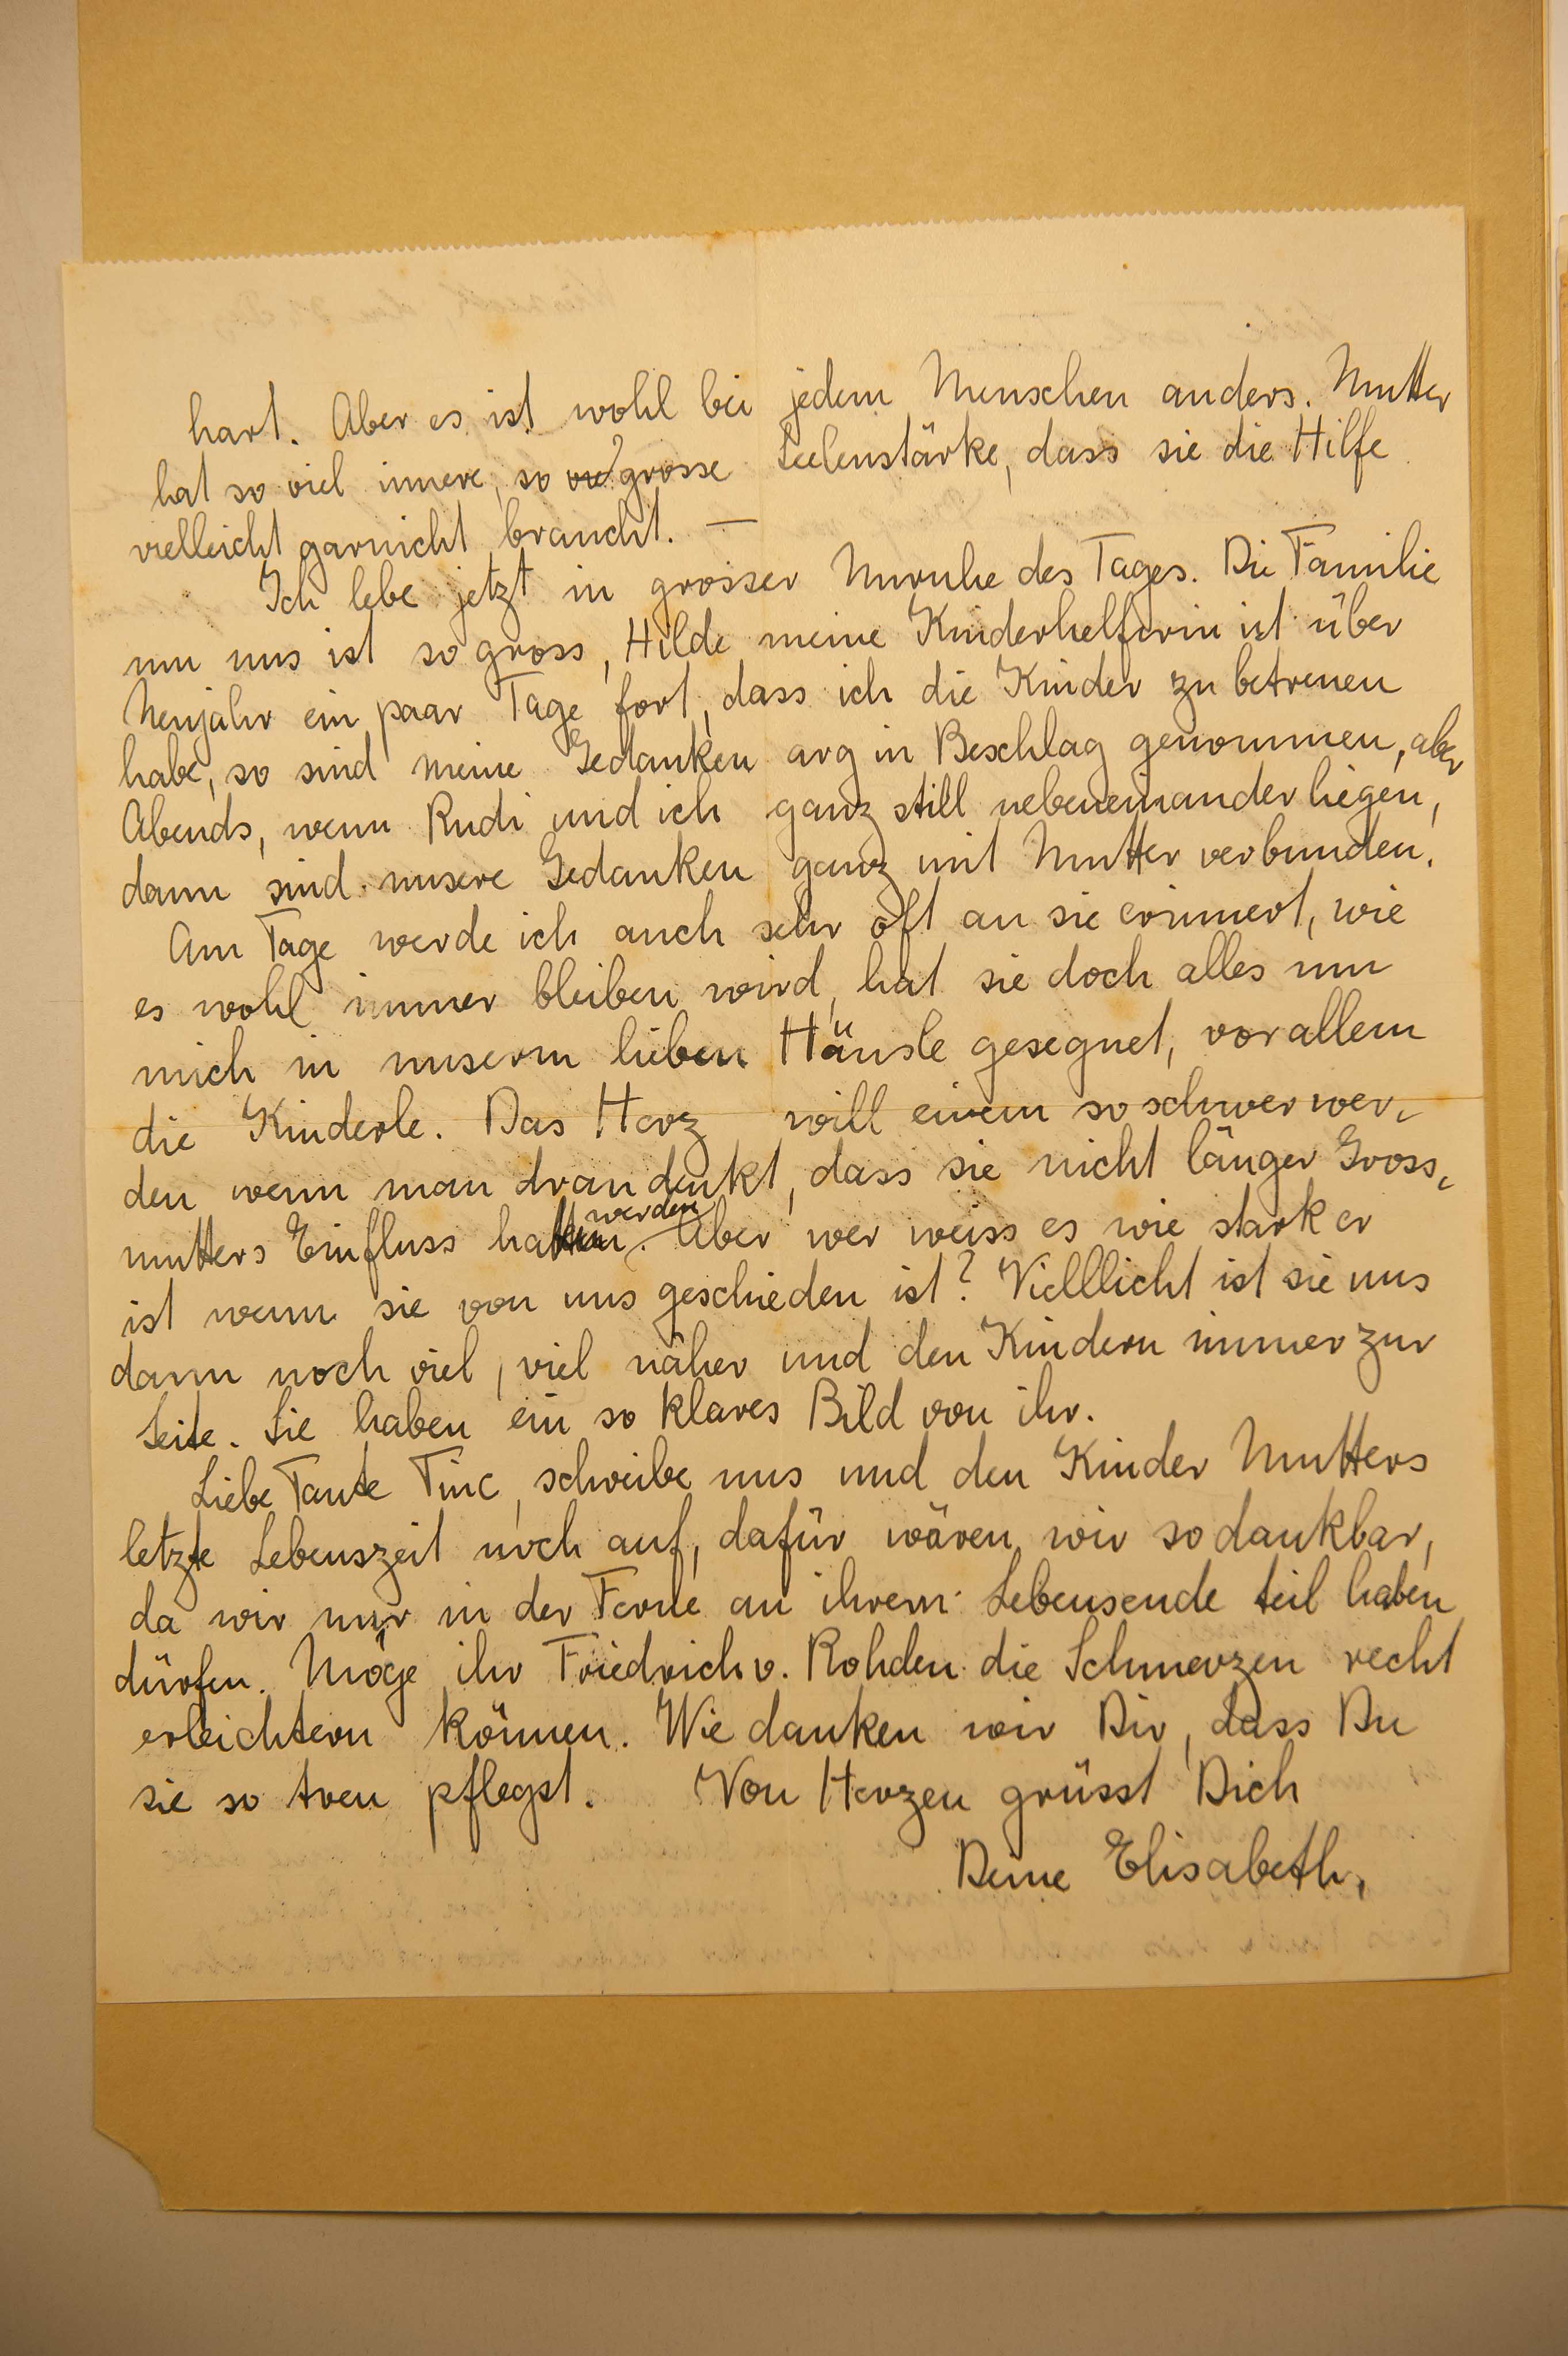 hart. Aber es ist wohl bei jedem Menschen anders. Mutter
hat so viel innere, so grosse Seelenstärke, dass sie die Hilfe
vielleicht garnicht braucht. —
Ich lebe jetzt in grosser Unruhe des Tages. Die Familie
um uns ist so gross, Hilde meine Kinderhelferin ist über
Neujahr ein paar Tage fort, dass ich die Kinder zu betreuen
habe, so sind meine Gedanken arg in Beschlag genommen, aber
Abends, wenn Rudi und ich ganz still nebeneinander liegen,
dann sind unsere Gedanken ganz mit Mutter verbunden.
Am Tage werde ich auch sehr oft an sie erinnert, wie
es wohl immer bleiben wird, hat sie doch alles um
mich in unserm lieben Häusle gesegnet, vor allem
die Kinderle. Das Herz will einem so schwer wer-
den wenn man dran denkt, dass sie nicht länger Gross-
mutters Einfluss haben werden. Aber wer weiss es wie stark er
ist wenn sie von uns geschieden ist? Viellicht ist sie uns
dann noch viel, viel näher und den Kindern immer zur
Seite. Sie haben ein so klares Bild von ihr.
Liebe Tante Tine, schreibe uns und den Kinder Mutters
letzte Lebenszeit noch auf, dafür wären wir so dankbar,
da wir nur in der Ferne an ihrem Lebensende teil haben
dürfen. Möge ihr Friedrich v. Rohden die Schmerzen recht
erleichtern können. Wie danken wir Dir, dass Du
sie so treu pflegst. Von Herzen grüsst Dich
Deine Elisabeth.